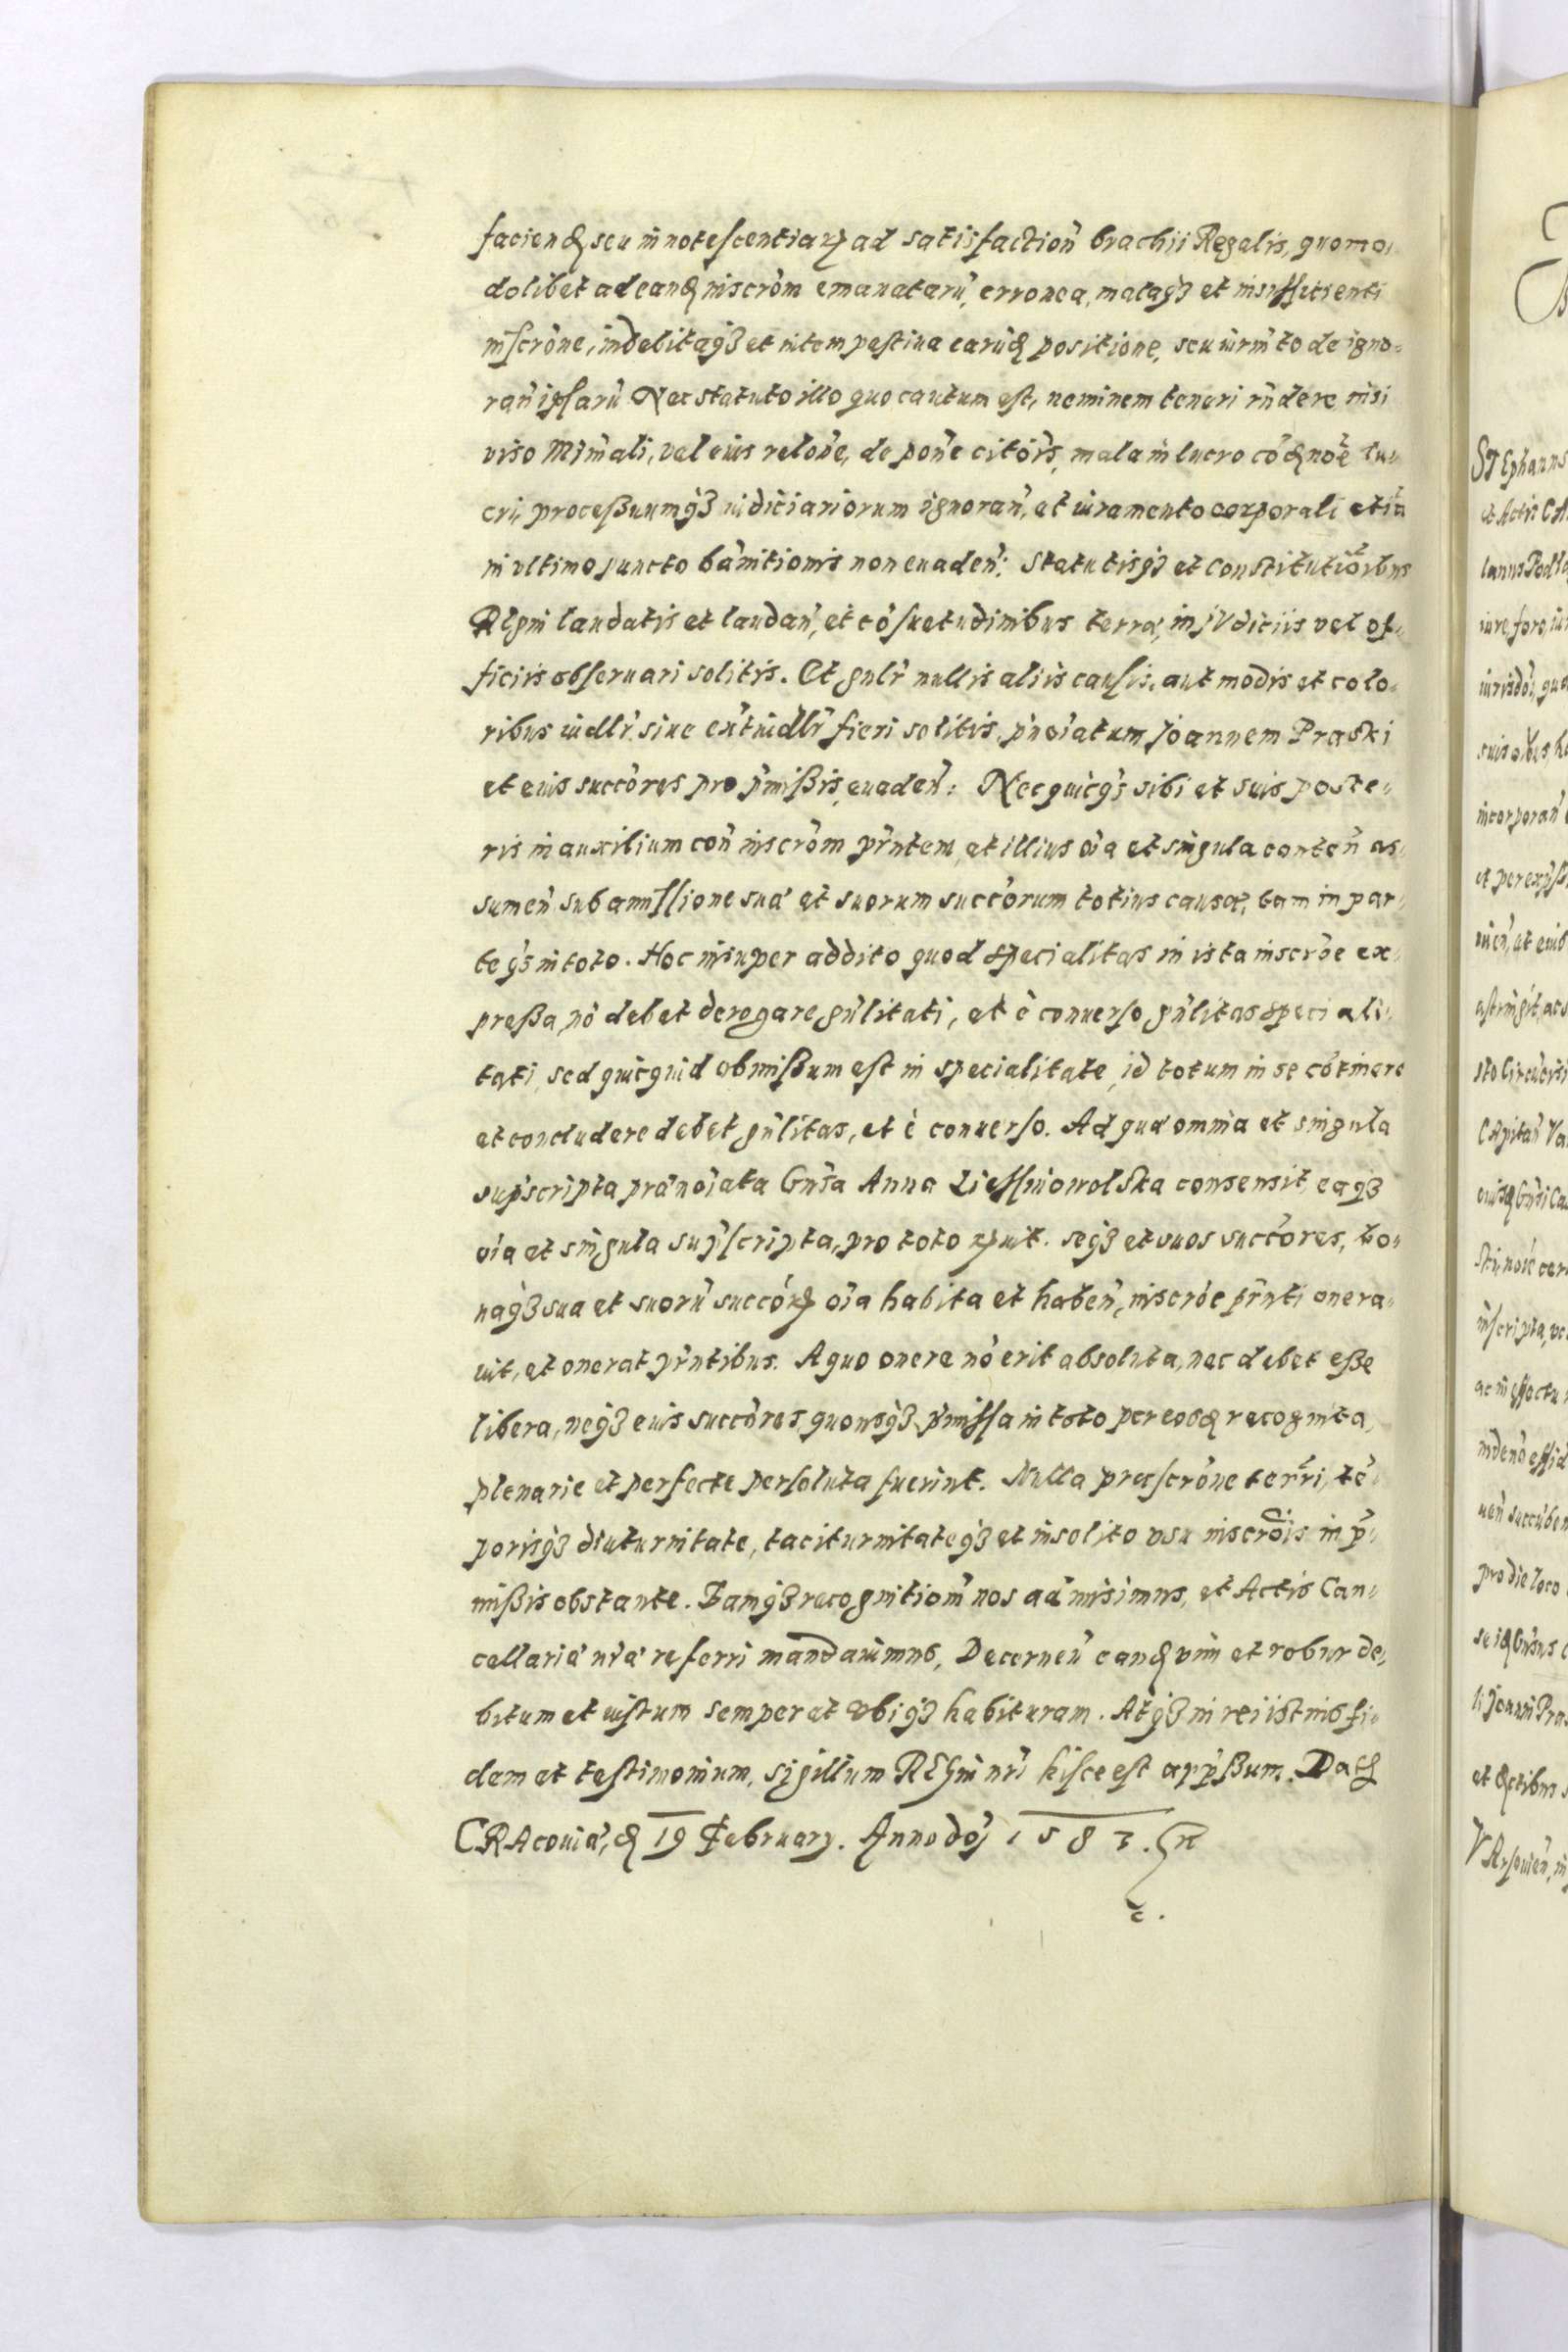 facienđ seu innotescentiarꝝ ad satisfactioñ brachii Regalis, quomo-
dolibet ad eanđ inscrõm emanatarũ, erronea, malaqȝ et insufficienti
inscrõne, indebitaqȝ et intempestiua earũđ positione, seu iurmto de igno-
rañ ipsarũ Nec statuto illo quo cautum est, neminem teneri rñdere nisi
viso Mĩnali, vel eius relõne, de põne citõis, mala in lucro cõđnõe lu-
cri, processuumqȝ iudiciariorum ignorañ, et iuramento corporali etiã
in vltimo puncto bãnitionis non euadeñ: Statutisqȝ et Constitutiõibus
Regni laudatis et laudañ, et cõsuetudinibus terræ, in Iudiciis vel of-
ficiis obseruari solitis. Et gñlr nullis aliis causis, aut modis et colo-
ribus iudlr siue extiudlr fieri solitis, pñoiatum Joannem Praski
et eius succõres pro p̃missis, euadeñ: Nec quicqȝ sibi et suis poste-
ris in auxilium coñ inscrõm pr̃ntem, et illius oĩa et singula conteñ as-
sumeñ sub amissione sua et suorum succõrum totius causæ, tam in par-
te qȝ in toto. Hoc insuper addito quod specialitas in ista inscrõe ex-
pressa, nõ debet derogare gñlitati, et è conuerso gñlitas speciali-
tati, sed quicquid obmissum est in specialitate, id totum in se cõtinere
et concludere debet gñlitas, et è conuerso. Ad quæ omnia et singula
sup̃scripta prænoĩata Gnsa Anna Liessniowolska consensit, eaqȝ
oĩa et singula sup̃scripta, pro toto ꝝuit. seqȝ et suos succõres, bo-
naqȝ sua et suorũ succõrꝝ oĩa habita et habeñ, inscrõe pr̃nti onera-
uit, et onerat pr̃ntibus. A quo onere nõ erit absoluta, nec debet esse
libera, neqȝ eius succõres, quousqȝ p̃missa in toto per eosđ recognita,
plenarie et perfecte persoluta fuerint. Nulla præscrõne terrĩ, tẽ-
porisqȝ diuturnitate, taciturnitateqȝ et insolito vsu inscrõis in p̃-
missis obstante. Zamqȝ recognitionẽ nos admisimus, et Actis Can-
cellariæ nr̃æ referri mandauimus, Decerneñ eanđ vim et robur de-
bitum et iustum semper et vbiqȝ habituram. Atqȝ in rei istius fi-
dem et testimonium, sigillum Regni nrĩ hisce est app̃ssum. Datꝭ
CRAcouiæ, đ 19 Februarȳ. Anno dõj 1583.